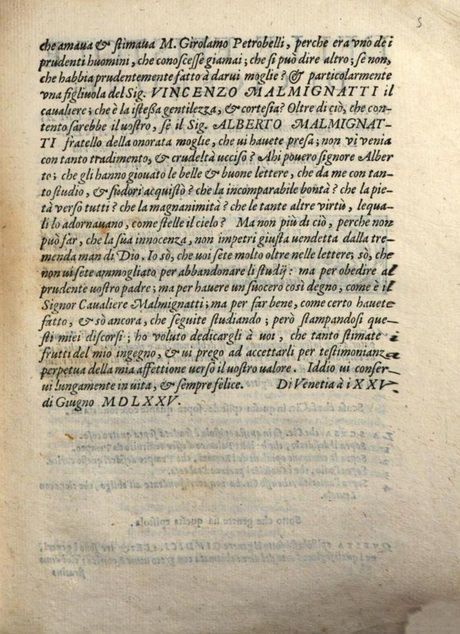 5
che amaua & stimaua M. Girolamo Petrobelli, perche era vno de i
prudenti huomini, che conoscesse giamai; che si può dire altro; se non,
che habbia prudentemente fatto à darui moglie? & particolarmente
vna figliuola del Sig. VINCENZO MALMIGNATTI il
caualiere; che è la istessa gentilezza, & cortesia? Oltre di ciò, che con-
tento sarebbe il uostro, se il Sig. ALBERTO MALMIGNAT-
TI fratello della onorata moglie, che ui hauete presa; non vi venia
con tanto tradimento, & crudeltà ucciso? Ahi pouero signore Alber
to; che gli hanno giouato le belle & buone lettere, che da me con tan-
to studio, & sudori acquistò? che la incomparabile bontà? che la pie-
tà verso tutti? che la magnanimità? che le tante altre virtù, lequa-
li lo adornauano, come stelle il cielo? Ma non più di ciò, perche non
può far, che la sua innocenza, non impetri giusta uendetta dalla tre-
menda man di Dio. Io sò, che uoi sete molto oltre nelle lettere; sò, che
non ui sete ammogliato per abbandonare li studij: ma per obedire al
prudente uostro padre; ma per hauere un suocero così degno, come è il
Signor Caualiere Malmignatti; ma per far bene, come certo hauete
fatto, & sò ancora, che seguite studiando; però stampandosi que-
sti miei discorsi; ho voluto dedicargli à uoi, che tanto stimate i
frutti del mio ingegno, & ui prego ad accettarli per testimonianza
perpetua della mia affettione verso il uostro valore. Iddio ui conser-
ui lungamente in vita, & sempre felice. Di Venetia à i XXV.
di Giugno MDLXXV.